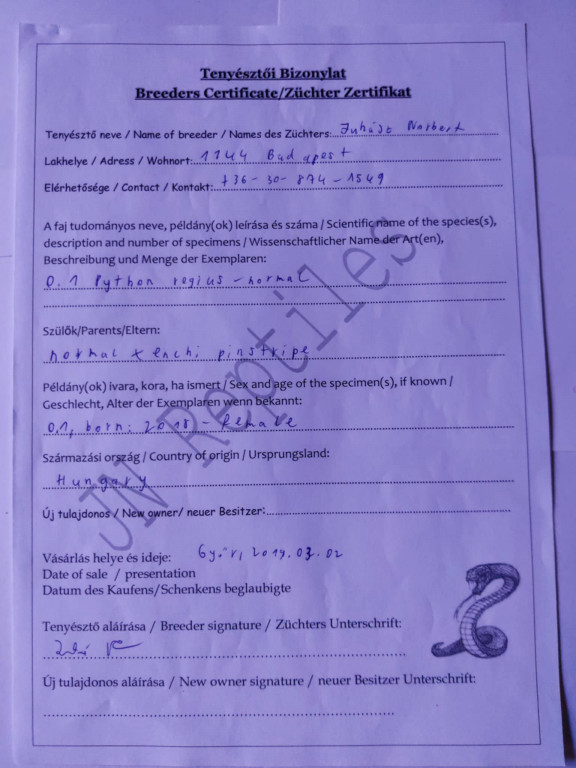 Tenyésztői Bizonylat
Breeders Certificate/Züchter Zertifikat
Tenyésztő neve / Name of breeder / Names des Züchters: Juhász Norbert
Lakhelye / Adress / Wohnort: 1144 Budapest
Elérhetősége / Contact / Kontakt: +36-30-874-1549
A faj tudományos neve, példány(ok) leírása és száma / Scientific name of the species(s),
description and number of specimens / Wissenschaftlicher Name der Art(en),
Beschreibung und Menge der Exemplaren:
0.1 Python regius - normal
Szülők/Parents/Eltern:
normal x enchi pinstripe
Példány(ok) ivara, kora, ha ismert / Sex and age of the specimen(s), if known /
Geschlecht, Alter der Exemplaren wenn bekannt:
0.1, born: 2018 - female
Származási ország / Country of origin / Ursprungsland:
Hungary
Új tulajdonos / New owner/ neuer Besitzer:
Vásárlás helye és ideje: Győr, 2019.03.02
Date of sale / presentation
Datum des Kaufens/Schenkens beglaubigte
Tenyésztő aláírása / Breeder signature / Züchters Unterschrift:
Új tulajdonos aláírása / New owner signature / neuer Besitzer Unterschrift:
JN Reptiles